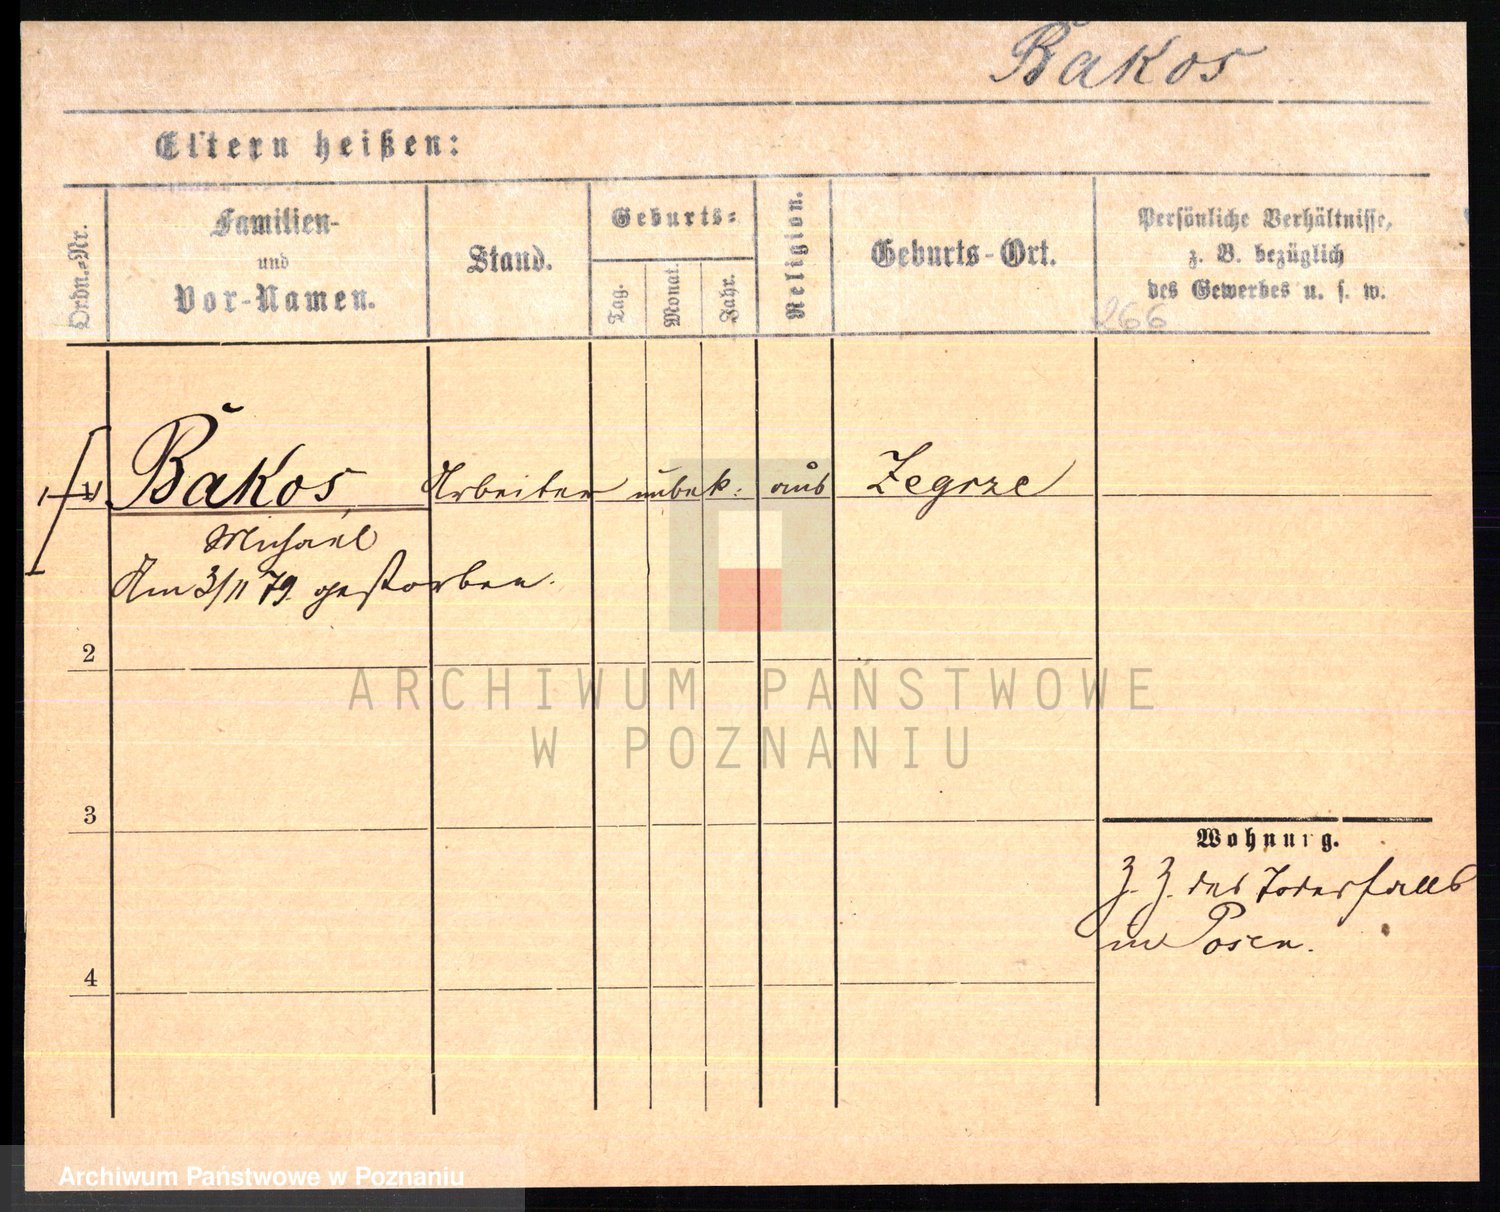 Bakos
Eltern heißen:
Ordn.-Nr.
Familien-
und
Vor-Namen.
Stand.
Geburts-
Tag.
Monat.
Jahr.
Religion.
Geburts-Ort.
Persönliche Verhältnisse,
z. B. bezüglich
des Gewerbes u. s. w.
266
1
Bakos, Arbeiter unbek. aus Zegrze
Michael
Am 3/11 79 gestorben.
2
ARCHIWUM PAŃSTWOWE
W POZNANIU
3
Wohnung.
z. Z. des Todesfalls
in Posen.
4
Archiwum Państwowe w Poznaniu